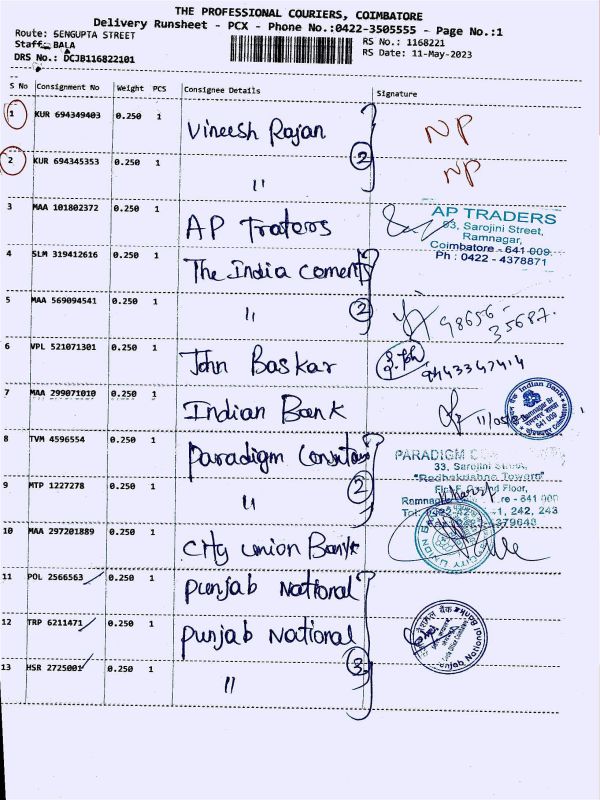 THE PROFESSIONAL COURIERS, COIMBATORE
Delivery Runsheet - PCX - Phone No.:0422-3505555 - Page No.:1
Route: SENGUPTA STREET
Staff: BALA
DRS No.: DCJB116822101
RS No.: 1168221
RS Date: 11-May-2023
S No Consignment No Weight PCS Consignee Details Signature
1 KUR 694349403 0.250 1 Vineesh Rajan NP
2 KUR 694345353 0.250 1 " ② NP
3 MAA 101802372 0.250 1 AP Traders
AP TRADERS
93, Sarojini Street,
Ramnagar,
Coimbatore - 641 009.
Ph : 0422 - 4378871
4 SLM 319412616 0.250 1 The India Cements
5 MAA 569094541 0.250 1 " ② 98656-35687.
6 VPL 521071301 0.250 1 John Baskar 9443347414
7 MAA 299071010 0.250 1 Indian Bank 11/05/
Indian Bank
641 009
8 TVM 4596554 0.250 1 Paradigm
PARADIGM
33, Sarojini Street,
"Radhakrishna Towers"
Floor,
Ramnagar, - 641 009
1, 242, 243
9 MTP 1227278 0.250 1 " ②
10 MAA 297201889 0.250 1 City Union Bank
CITY UNION BANK
11 POL 2566563 0.250 1 Punjab National
12 TRP 6211471 0.250 1 Punjab National
Punjab National Bank
13 HSR 2725001 0.250 1 " ③